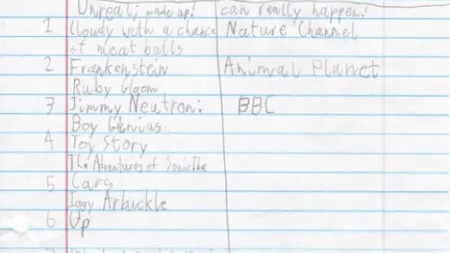 Unreal; make up! can really happen!
1 Cloudy with a chance Nature Channel
of meat balls
2 Frankenstein Animal Planet
Ruby Gloom
3 Jimmy Neutron: BBC
Boy Genius
4 Toy Story
The Adventures of Sonic The
5 Cars
Iggy Arbuckle
6 Up